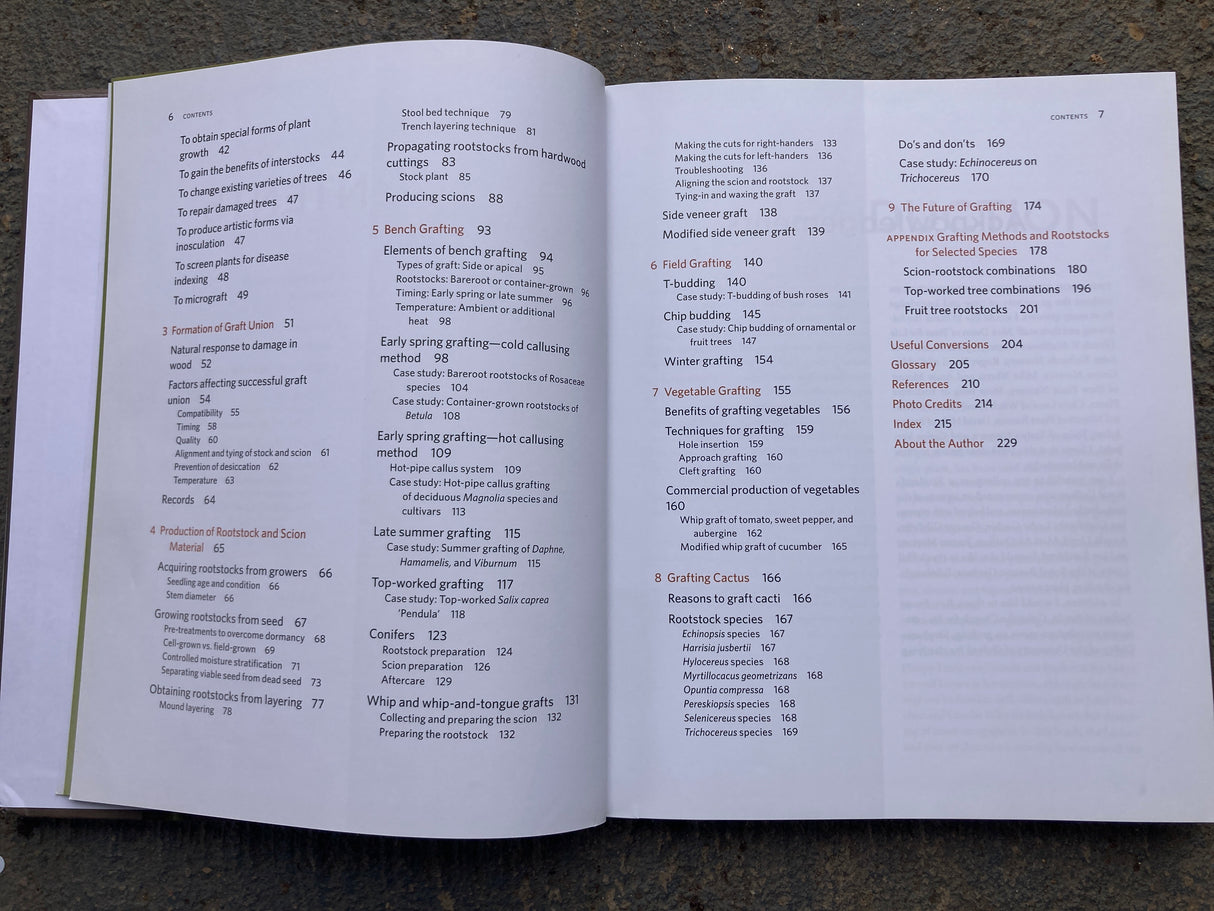 6 CONTENTS
To obtain special forms of plant
growth 42
To gain the benefits of interstocks 44
To change existing varieties of trees 46
To repair damaged trees 47
To produce artistic forms via
inosculation 47
To screen plants for disease
indexing 48
To micrograft 49
3 Formation of Graft Union 51
Natural response to damage in
wood 52
Factors affecting successful graft
union 54
Compatibility 55
Timing 58
Quality 60
Alignment and tying of stock and scion 61
Prevention of desiccation 62
Temperature 63
Records 64
4 Production of Rootstock and Scion
Material 65
Acquiring rootstocks from growers 66
Seedling age and condition 66
Stem diameter 66
Growing rootstocks from seed 67
Pre-treatments to overcome dormancy 68
Cell-grown vs. field-grown 69
Controlled moisture stratification 71
Separating viable seed from dead seed 73
Obtaining rootstocks from layering 77
Mound layering 78
Stool bed technique 79
Trench layering technique 81
Propagating rootstocks from hardwood
cuttings 83
Stock plant 85
Producing scions 88
5 Bench Grafting 93
Elements of bench grafting 94
Types of graft: Side or apical 95
Rootstocks: Bareroot or container-grown 96
Timing: Early spring or late summer 96
Temperature: Ambient or additional
heat 98
Early spring grafting—cold callusing
method 98
Case study: Bareroot rootstocks of Rosaceae
species 104
Case study: Container-grown rootstocks of
Betula 108
Early spring grafting—hot callusing
method 109
Hot-pipe callus system 109
Case study: Hot-pipe callus grafting
of deciduous Magnolia species and
cultivars 113
Late summer grafting 115
Case study: Summer grafting of Daphne,
Hamamelis, and Viburnum 115
Top-worked grafting 117
Case study: Top-worked Salix caprea
‘Pendula’ 118
Conifers 123
Rootstock preparation 124
Scion preparation 126
Aftercare 129
Whip and whip-and-tongue grafts 131
Collecting and preparing the scion 132
Preparing the rootstock 132
CONTENTS 7
Making the cuts for right-handers 133
Making the cuts for left-handers 136
Troubleshooting 136
Aligning the scion and rootstock 137
Tying-in and waxing the graft 137
Side veneer graft 138
Modified side veneer graft 139
6 Field Grafting 140
T-budding 140
Case study: T-budding of bush roses 141
Chip budding 145
Case study: Chip budding of ornamental or
fruit trees 147
Winter grafting 154
7 Vegetable Grafting 155
Benefits of grafting vegetables 156
Techniques for grafting 159
Hole insertion 159
Approach grafting 160
Cleft grafting 160
Commercial production of vegetables
160
Whip graft of tomato, sweet pepper, and
aubergine 162
Modified whip graft of cucumber 165
8 Grafting Cactus 166
Reasons to graft cacti 166
Rootstock species 167
Echinopsis species 167
Harrisia jusbertii 167
Hylocereus species 168
Myrtillocacus geometrizans 168
Opuntia compressa 168
Pereskiopsis species 168
Selenicereus species 168
Trichocereus species 169
Do's and don'ts 169
Case study: Echinocereus on
Trichocereus 170
9 The Future of Grafting 174
APPENDIX Grafting Methods and Rootstocks
for Selected Species 178
Scion-rootstock combinations 180
Top-worked tree combinations 196
Fruit tree rootstocks 201
Useful Conversions 204
Glossary 205
References 210
Photo Credits 214
Index 215
About the Author 229